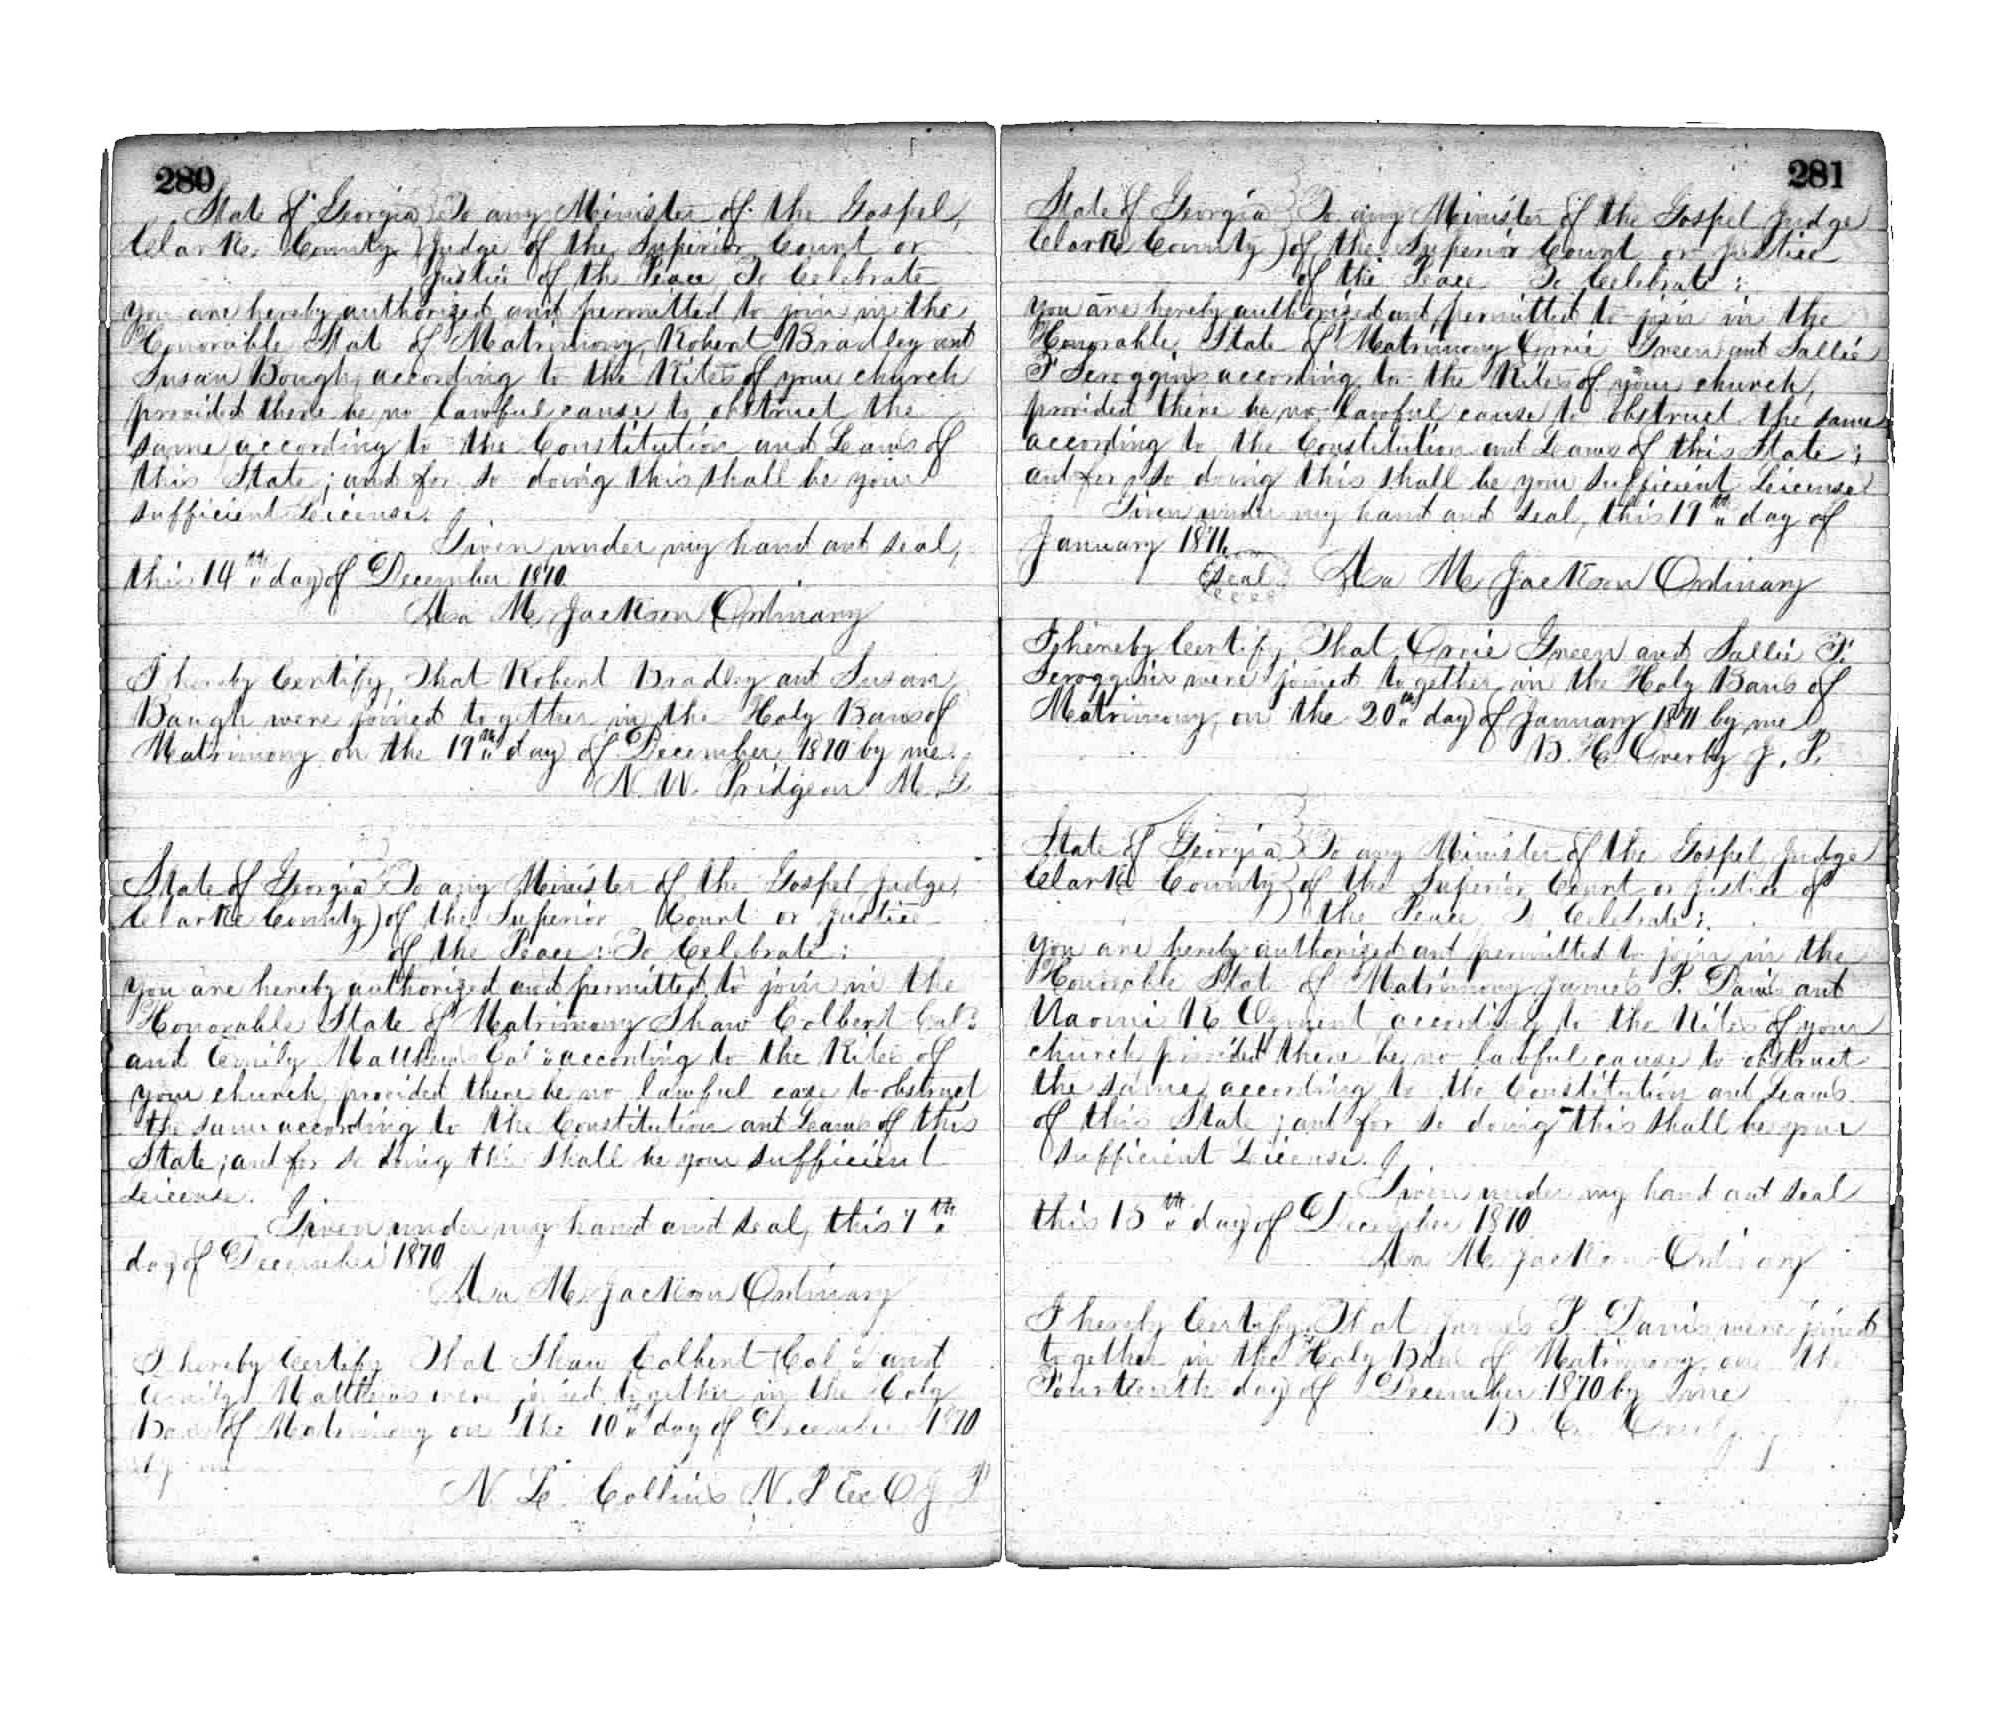 280
State of Georgia } To any Minister of the Gospel,
Clarke County } Judge of the Superior Court or
Justice of the Peace To Celebrate
you are hereby authorized and permitted to join in the
Honorable State of Matrimony, Robert Bradley and
Susan Bough, according to the Rites of your church
provided there be no lawful cause to obstruct the
same according to the Constitution and Laws of
this State; and for so doing this shall be your
sufficient License.
Given under my hand and seal,
this 14th day of December 1870.
Asa M. Jackson Ordinary
I hereby Certify, That Robert Bradley and Susan
Baugh were joined together in the Holy Bans of
Matrimony on the 19th day of December, 1870 by me.
N. W. Pridgeon M. G.
State of Georgia } To any Minister of the Gospel, Judge
Clarke County } of the Superior Court or Justice
of the Peace: To Celebrate:
you are hereby authorized and permitted, to join in the
Honorable State of Matrimony Shaw Colbert Col.
and Emily Matthews Col according to the Rites of
your church, provided there be no lawful case to obstruct
the same according to the Constitution and Laws of this
State; and for so doing this shall be your sufficient
License.
Given under my hand and seal, this 7th
day of December 1870
Asa M. Jackson Ordinary
I hereby Certify That Shaw Colbert Col and
Emily Matthews were joined together in the Holy
Bans of Matrimony on the 10th day of December 1870
by me
N. L. Collins N. P. Ex O J P
281
State of Georgia } To any Minister of the Gospel Judge
Clarke County } of the Superior Court or Justice
of the Peace To Celebrate:
you are hereby authorized and permitted to join in the
Honorable State of Matrimony Orrie Green and Sallie
F Scroggins according, to the Rites of your church,
provided there be no lawful cause to obstruct the same
according to the Constitution and Laws of this State;
and for so doing this shall be your sufficient License
Given under my hand and seal, this 19th day of
January 1871.
Seal Asa M. Jackson Ordinary
I hereby Certify That Orrie Green and Sallie F.
Scroggins were joined together in the Holy Bans of
Matrimony, on the 20th day of January 1871 by me
B. H. Overby J. P.
State of Georgia } To any Minister of the Gospel, Judge
Clarke County } of the Superior Court or Justice of
the Peace To Celebrate:
you are hereby authorized and permitted to join in the
Honorable State of Matrimony James P. Davis and
Naomi R. Ogment according to the Rites of your
church, provided there be no lawful cause to obstruct
the same, according to the Constitution and Laws
of this State; and for so doing this shall be your
sufficient License.
Given under my hand and seal
this 13th day of December 1870
Asa M. Jackson Ordinary
I hereby Certify, That James P. Davis were joined
together in the Holy Bans of Matrimony, on the
Fourteenth day of December 1870 by me
B. H. Overby J